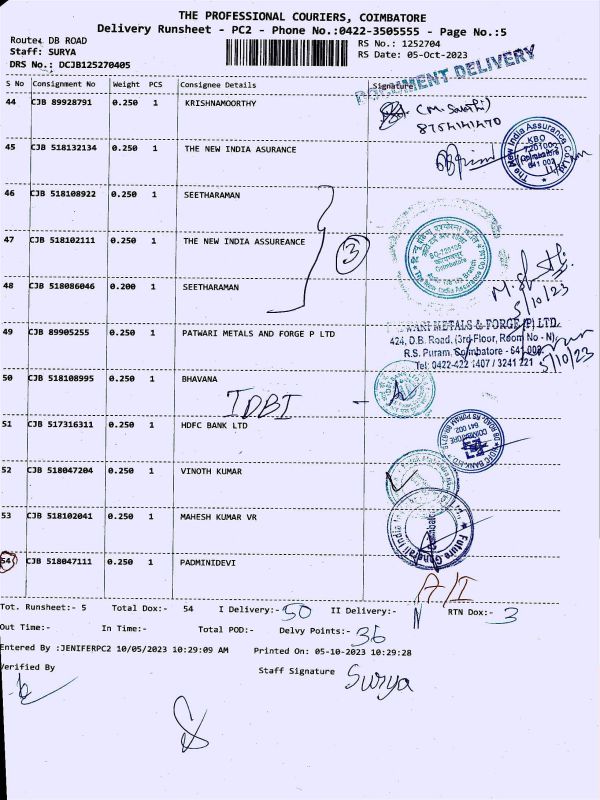 THE PROFESSIONAL COURIERS, COIMBATORE
Delivery Runsheet - PC2 - Phone No.:0422-3505555 - Page No.:5
Route: DB ROAD
Staff: SURYA
DRS No.: DCJB125270405
RS No.: 1252704
RS Date: 05-Oct-2023
DOCUMENT DELIVERY
S No Consignment No Weight PCS Consignee Details Signature
44 CJB 89928791 0.250 1 KRISHNAMOORTHY
45 CJB 518132134 0.250 1 THE NEW INDIA ASURANCE
The New India Assurance Co. Ltd.
KBO
720100
Coimbatore
641 002
46 CJB 518108922 0.250 1 SEETHARAMAN
47 CJB 518102111 0.250 1 THE NEW INDIA ASSUREANCE
3
48 CJB 518086046 0.200 1 SEETHARAMAN
5/10/23
49 CJB 89905255 0.250 1 PATWARI METALS AND FORGE P LTD
WARI METALS & FORGE (P) LTD.
424, D.B. Road, (3rd Floor, Room No - N)
R.S. Puram, Coimbatore - 641 002.
Tel: 0422-422 1407 / 3241 221
5/10/23
50 CJB 518108995 0.250 1 BHAVANA
IDBI
51 CJB 517316311 0.250 1 HDFC BANK LTD
HDFC BANK LTD
COIMBATORE
641 002
52 CJB 518047204 0.250 1 VINOTH KUMAR
53 CJB 518102041 0.250 1 MAHESH KUMAR VR
Future Generali
54 CJB 518047111 0.250 1 PADMINIDEVI
A/I
Tot. Runsheet:- 5 Total Dox:- 54 I Delivery:- 50 II Delivery:- RTN Dox:- 3
Out Time:- In Time:- Total POD:- Delvy Points:- 36
Entered By :JENIFERPC2 10/05/2023 10:29:09 AM Printed On: 05-10-2023 10:29:28
Verified By Staff Signature Surya